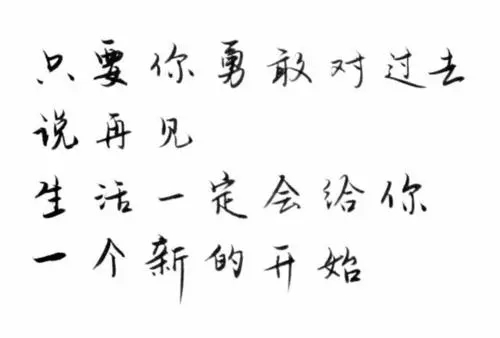 只要你勇敢对过去
说再见
生活一定会给你
一个新的开始